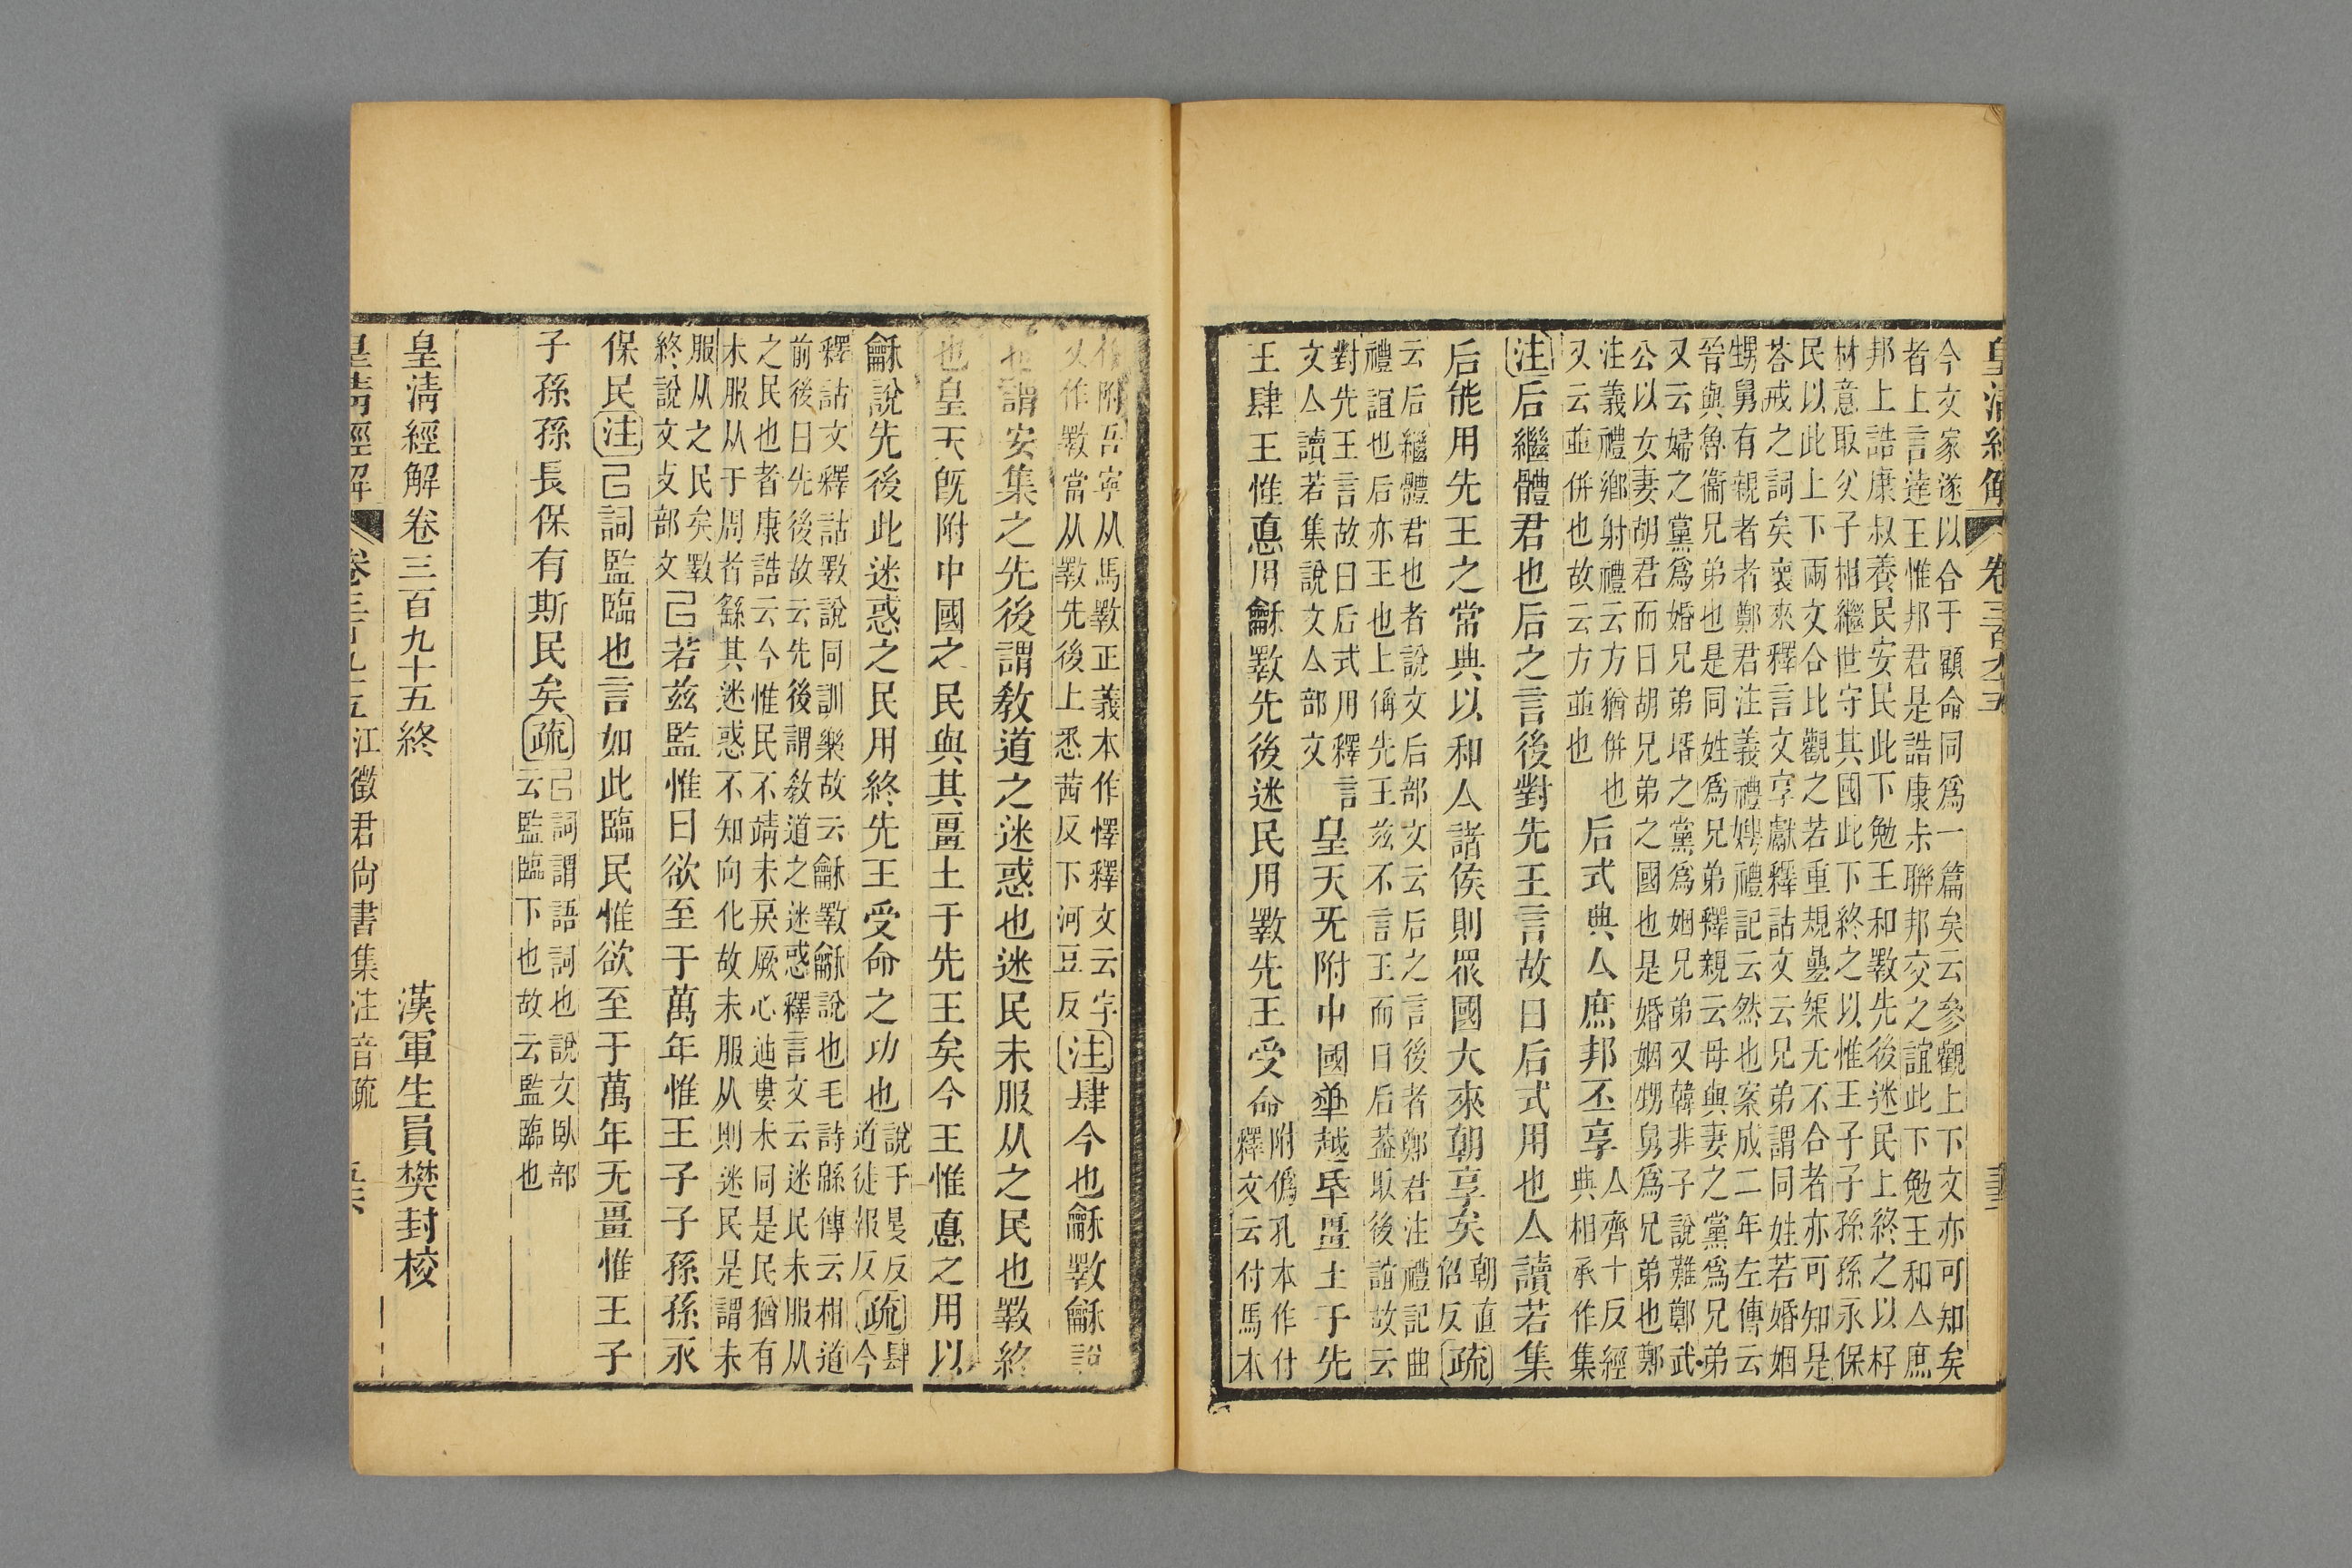 皇清經解 卷三百九十五
今文家遂以合于顧命同爲一篇矣云參觀上下文亦可知矣
者上言達王惟邦君是誥康未聯邦交之誼此下勉王和亼庶
邦上誥康叔養民安民此下勉王和斁先後迷民上終之以杍
材意取父子相繼世守其國此下終之以惟王子子孫孫永保
民以此上下兩文合比觀之若重規疊榘无不合者亦可知是
荅戒之詞矣褱來釋言文享獻釋詁文云兄弟謂同姓若婚姻
甥舅有親者者鄭君注義禮娉禮記云然也案成二年左傳云
晉與魯衞兄弟也是同姓爲兄弟釋親云母與妻之黨爲兄弟
又云婦之黨爲婚兄弟壻之黨爲姻兄弟又韓非子說難鄭武
公以女妻胡君而曰胡兄弟之國也是婚姻甥舅爲兄弟也鄭
注義禮鄉射禮云方猶併也
又云並併也故云方並也
后式典亼庶邦丕享
亼齊十反經
典相承作集
注后繼體君也后之言後對先王言故曰后式用也亼讀若集
后能用先王之常典以和亼諸侯則眾國大來朝享矣
朝直
佋反
疏
云后繼體君也者說文后部文云后之言後者鄭君注禮記曲
禮誼也后亦王也上偁先王茲不言王而曰后葢取後誼故云
對先王言故曰后式用釋言
文亼讀若集說文亼部文
皇天旡附中國𠦬越𠂹畺土于先
王肆王惟悳用龢斁先後迷民用斁先王受命
附僞孔本作付
釋文云付馬本
作附吾寧从馬斁正義本作懌釋文云字
又作斁當从斁先後上悉茜反下河豆反
注肆今也龢斁龢說
也謂安集之先後謂敎道之迷惑也迷民未服从之民也斁終
也皇天旣附中國之民與其畺土于先王矣今王惟悳之用以
龢說先後此迷惑之民用終先王受命之功也
說于㫗反
道徒報反
疏
肆今
釋詁文釋詁斁說同訓樂故云龢斁龢說也毛詩緜傳云相道
前後曰先後故云先後謂敎道之迷惑釋言文云迷民未服从
之民也者康誥云今惟民不靖未戾厥心迪婁未同是民猶有
未服从于周者繇其迷惑不知向化故未服从則迷民是謂未
服从之民矣斁
終說文攴部文
己若茲監惟曰欲至于萬年惟王子子孫孫永
保民注己詞監臨也言如此臨民惟欲至于萬年无畺惟王子
子孫孫長保有斯民矣疏
己詞謂語詞也說文臥部
云監臨下也故云監臨也
皇清經解卷三百九十五終
漢軍生員樊封校
皇清經解 卷三百九十五 江徵君尙書集注音疏